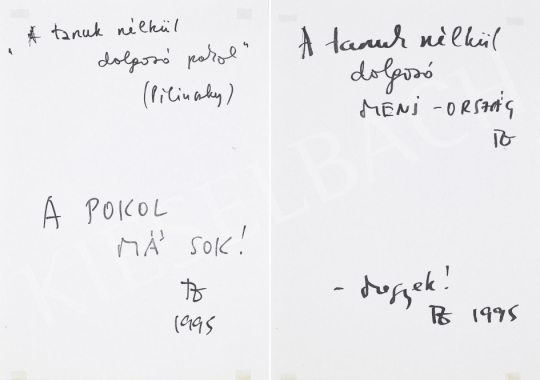 "A tanuk nélkül
dolgozó pokol"
(Pilinszky)
A POKOL
MÁ' SOK!
PZ
1995
A tanuk nélkül
dolgozó
MENJ-ORSZÁG
PZ
- megyek!
PZ 1995
KIESELBACH